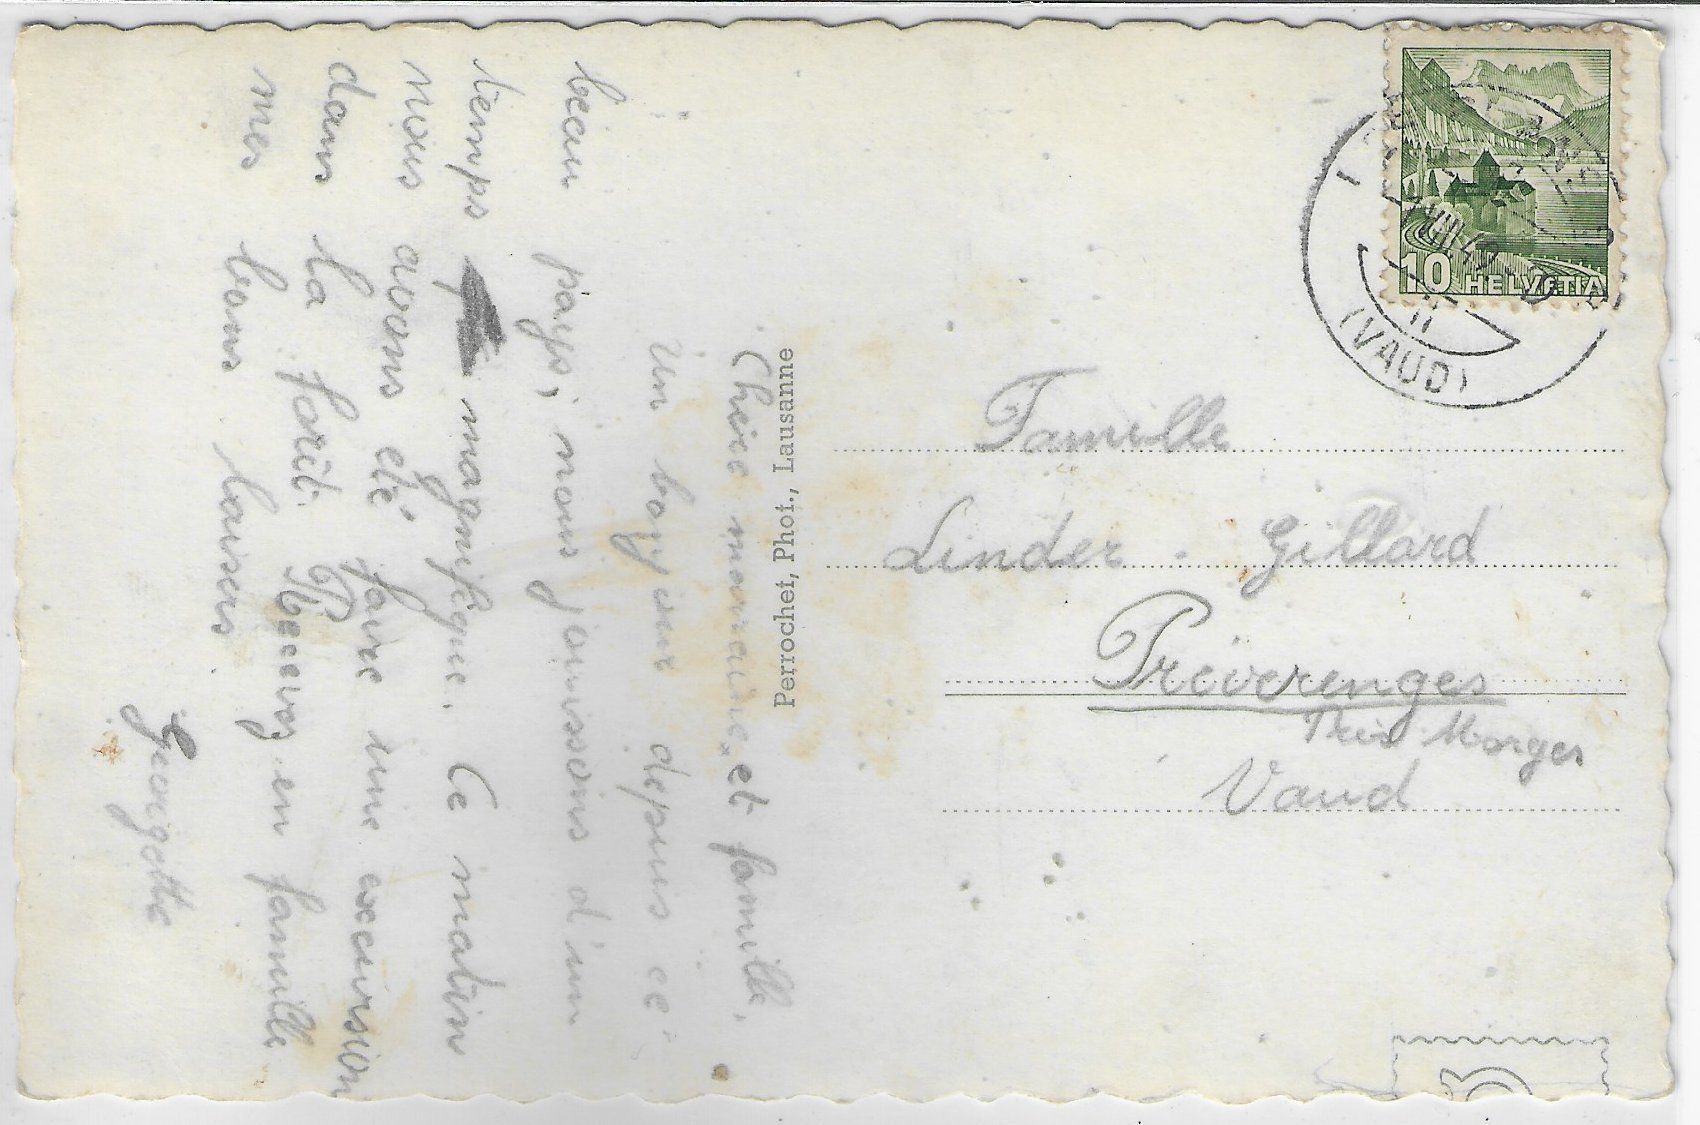 Chère marraine et famille,
Un bonjour depuis ce
beau pays, nous jouissons d'un
temps magnifique. Ce matin
nous avons été faire une excursion
dans la forêt. Recevez en famille
mes bons baisers
Georgette
Perrochet, Phot., Lausanne
10 HELVETIA
(VAUD)
Famille
Linder - Gillard
Préverenges
Près Morges
Vaud